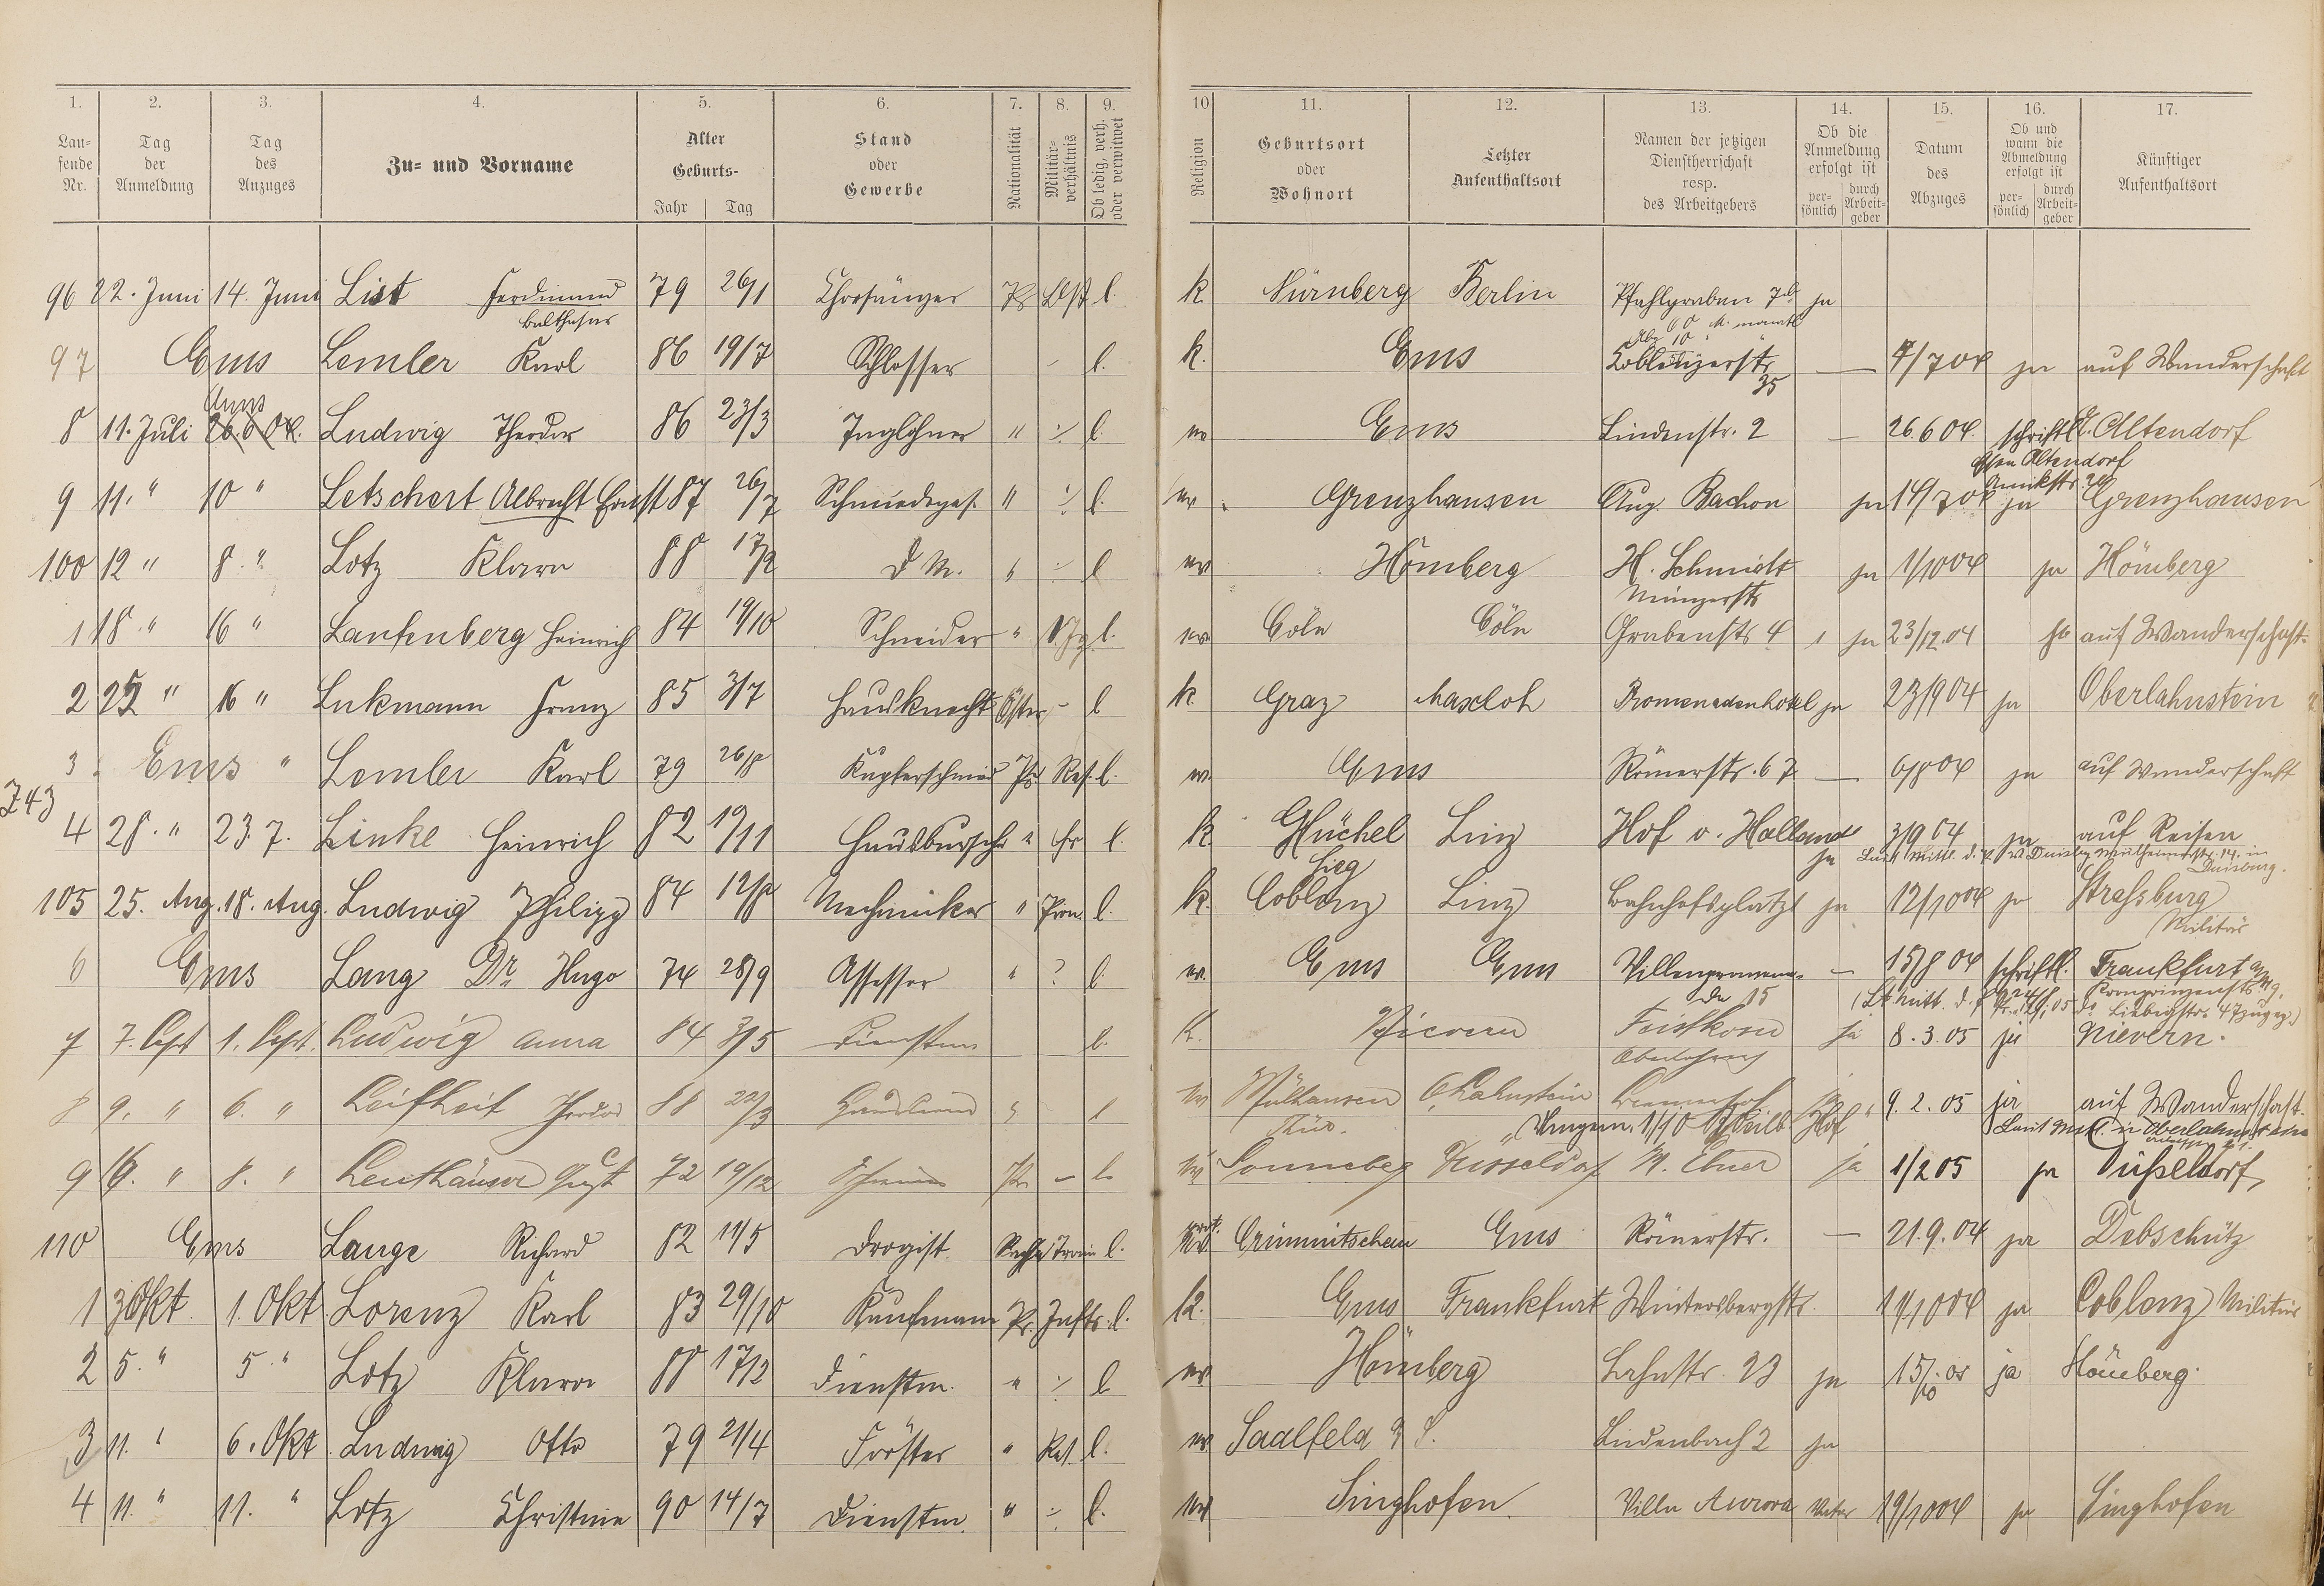 1. 2. 3. 4. 5. 6. 7. 8. 9. 10 11. 12. 13. 14. 15. 16. 17.
Lau-
fende
Nr.
Tag
der
Anmeldung
Tag
des
Anzuges
Zu- und Vorname
Alter
Geburts-
Jahr Tag
Stand
oder
Gewerbe
Nationalität
Militär-
verhältnis
Ob ledig, verh.
oder verwitwet
Religion
Geburtsort
oder
Wohnort
Letzter
Aufenthaltsort
Namen der jetzigen
Dienstherrschaft
resp.
des Arbeitgebers
Ob die
Anmeldung
erfolgt ist
per-
sönlich
durch
Arbeit-
geber
Datum
des
Abzuges
Ob und
wann die
Abmeldung
erfolgt ist
per-
sönlich
durch
Arbeit-
geber
Künftiger
Aufenthaltsort
96 22. Juni 14. Juni List Ferdinand 79 26/1 Chorsänger Pr. l. k. Nürnberg Berlin Pfahlgraben 7b ja
Balthasar
97 Ems Lemler Karl 86 19/7 Schlosser - l. k. Ems Koblenzerstr. — 4/7 04 ja auf Wanderschaft
35
Ems
8 11. Juli 26.6.04. Ludwig Theodor 86 23/3 Taglöhner " ÷ l. ev Ems Lindenstr. 2 — 26.6 04. schriftl. Altendorf
Essen Altendorf
9 11. " 10 " Letschert Albrecht Ernst 87 26/7 Schmiedeges. " ÷ l. ev. Grenzhausen Aug. Bachon ja 14/7 04 ja Grenzhausen
100 12 " 8. " Lotz Klara 88 17/2 D M. " ÷ l ev Hömberg H. Schmidt ja 1/10 04 ja Hömberg
1 18. " 16 " Laufenberg Heinrich 84 19/10 Schneider " l. ev. Cöln Cöln Grabenstr 4 1 ja 23/12.04 auf Wanderschaft.
2 25 " 16 " Lukmann Franz 85 3/7 Hausknecht Öster. - l k. Graz Marxloh Promenadenhotel ja 23/9 04 ja Oberlahnstein
3 Ems " Lemler Karl 79 26/8 Kupferschmied Pr. Res. l. ev. Ems Römerstr. 67 — 6/8 04 ja auf Wanderschaft
743
4 28. " 23. 7. Linke Heinrich 82 19/11 Hausbursche " l. k. Linz Hof v. Holland ja 3/9 04 ja auf Reisen
Sieg
Duisburg.
105 25. Aug. 18. Aug. Ludwig Philipp 84 12/8 Mechaniker " l. k. Coblenz Linz Bahnhofsplatz 1 ja 12/10 04 ja Strassburg
Militär
6 Ems Lang Dr. Hugo 74 28/9 Assessor " ? l. ev. Ems Ems Villenpromena- — 15/8 04 schriftl. Frankfurt a/M.
de 15
7 7. Sept 1. Sept. Ludwig Anna 84 3/5 Dienstm. l. k. Nievern ja 8.3.05 ja Nievern.
8 9. " 6. " Leifheit Theodor 88 22/3 l ev Mülhausen O.Lahnstein ja 9.2.05 ja auf Wanderschaft.
Thür.
9 16. " 8. " Leuthäuser Aug. 72 19/12 Pr. - l. ev Sonneberg Düsseldorf M. Ebner ja 1/2 05 ja Düsseldorf
110 Ems Lange Richard 82 11/5 Drogist Sachs. Train l. prot. Crimmitschau Ems Römerstr. — 21.9.04 ja Debschütz
1 3 Okt. 1. Okt Lorenz Karl 83 29/10 Kaufmann Pr. Inftr. l. k. Ems Frankfurt Wintersbergstr. 11/10 04 ja Coblenz Militär
2 5. " 5 " Lotz Klara 88 17/2 Dienstm. " ÷ l ev Hömberg Lahnstr. 23 ja 15/10.05 ja Hömberg.
3 11. " 6. Okt. Ludwig Otto 79 21/4 Förster " Res. l. ev Saalfeld a/S. Lindenbach 2 ja
4 11. " 11. " Lotz Christine 90 14/7 Dienstm. " ÷ l. ev Singhofen. Villa Aurora Vater 19/10 04 ja Singhofen